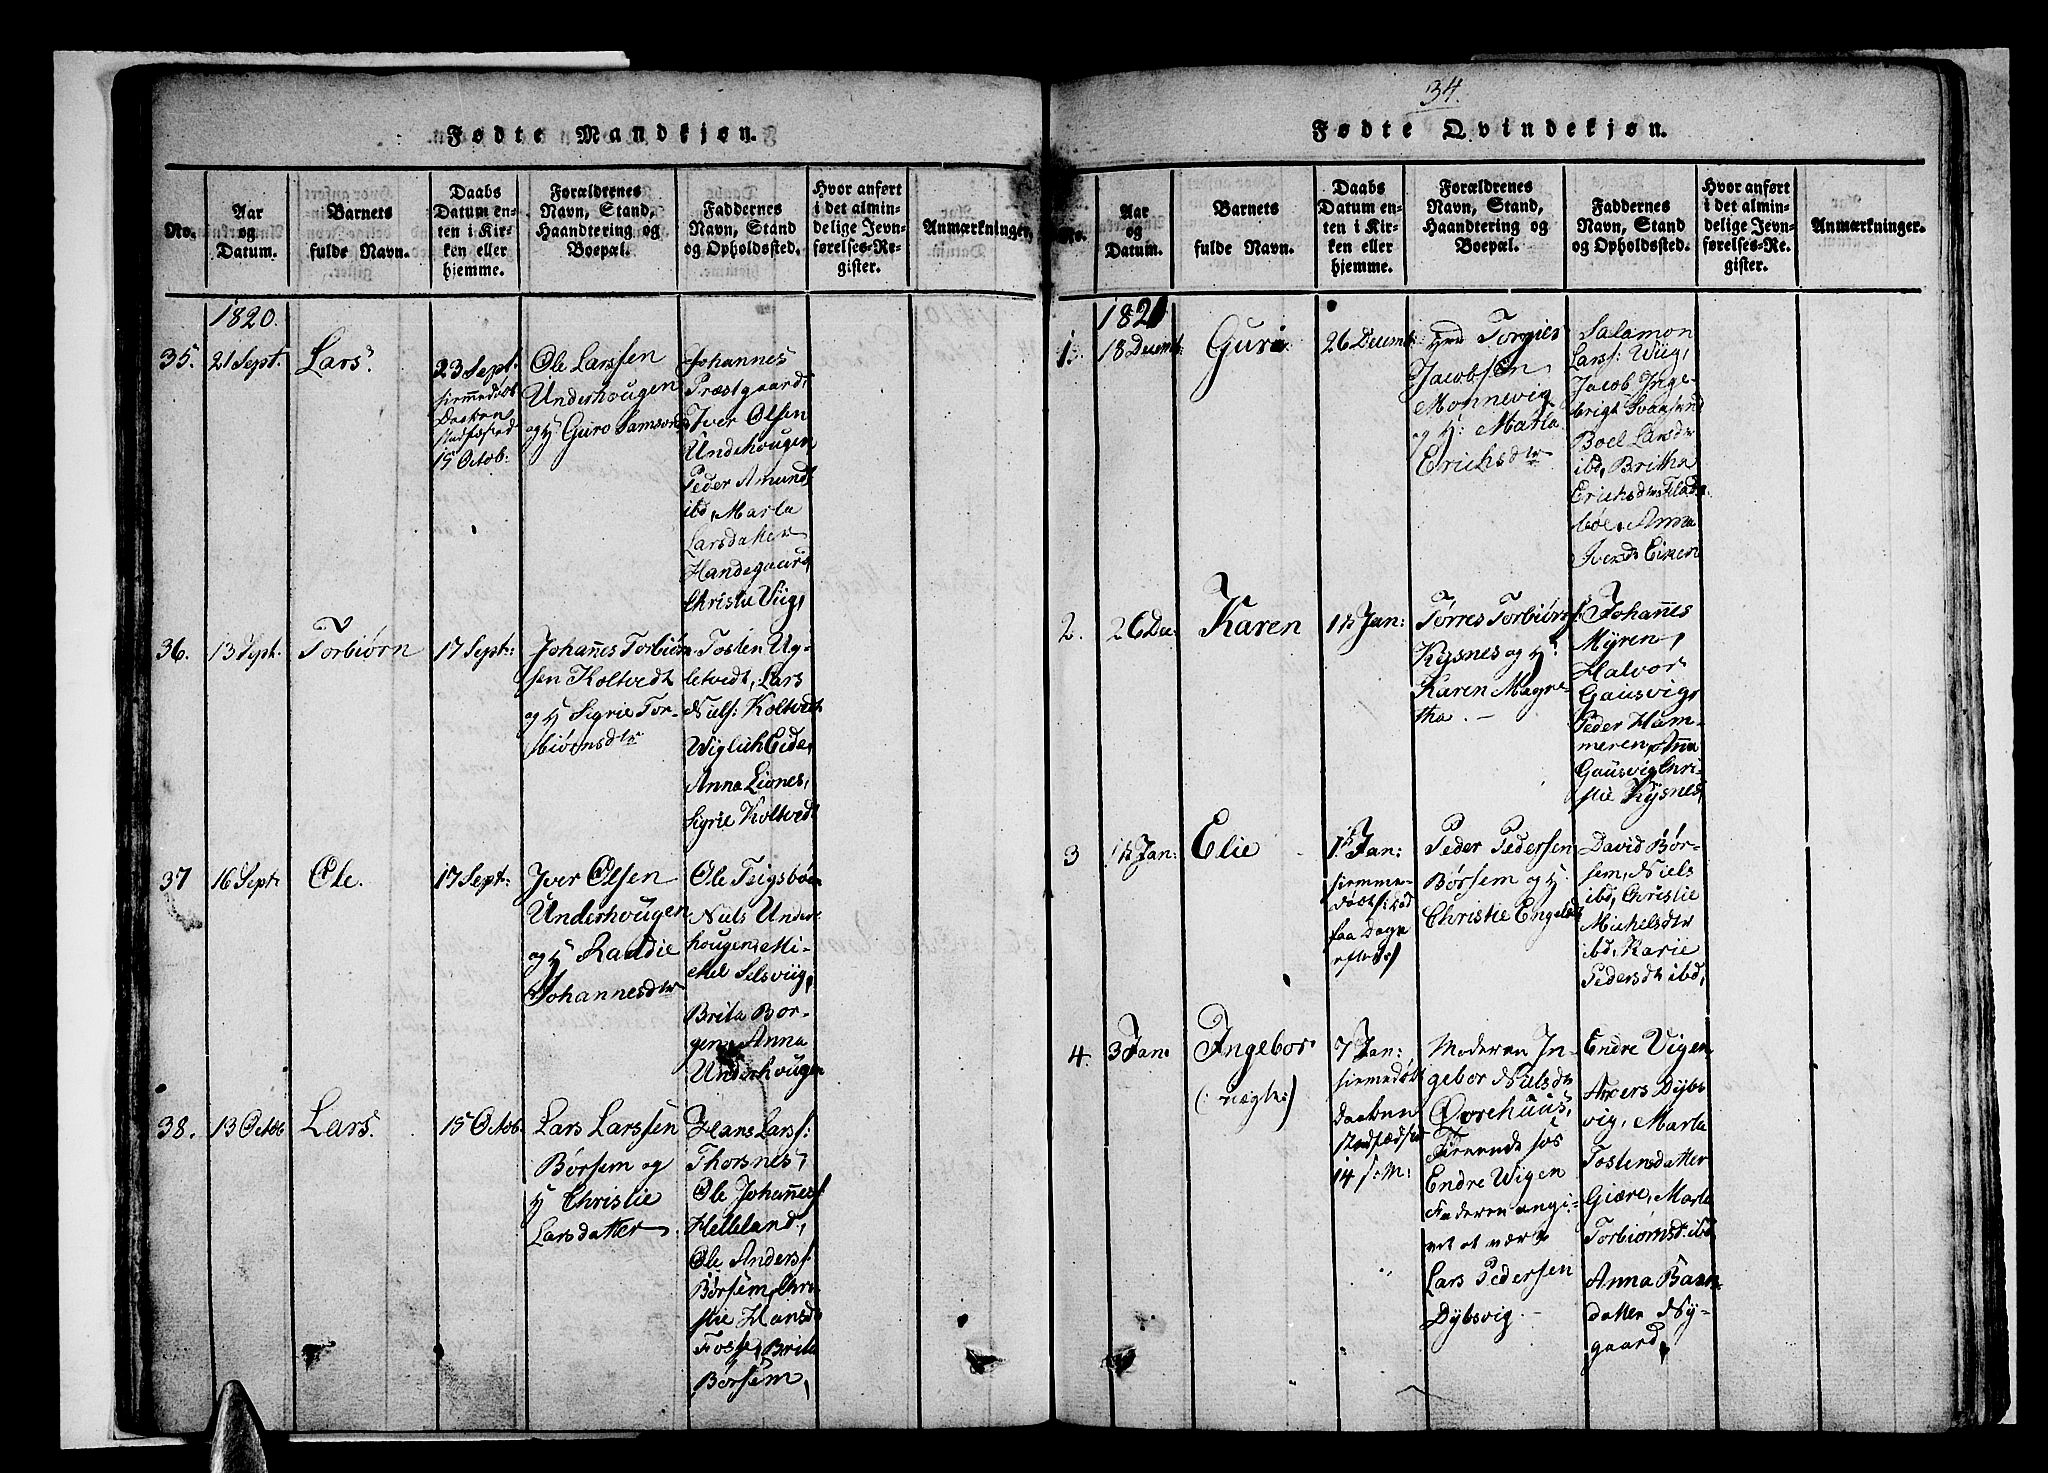 Fødte Mandkjøn.
No.
Aar
og
Datum.
Barnets
fulde Navn.
Daabs
Datum en-
ten i Kir-
ken eller
hjemme.
Forældrenes
Navn, Stand,
Haandtering og
Boepæl.
Faddernes
Navn, Stand
og Opholdssted.
Hvor anført
i det almin-
delige Jevn-
førelses-Re-
gister.
Anmærkninger.
1820.
35.
21 Sept.
Lars
23 Sept:
15 Octob:
Ole Larssen
Underhougen
og H Guro Samsons
Johannes
Præstgaard,
Iver Olsen
Underhougen
Peder Amund
ibd, Marta
Larsdatter
Handegaard,
Christie Viig,
36.
13 Sept.
Torbiørn
17 Sept:
Johan̄es Torbiørn
sen Koltvedt
og H Sigrie Tor-
biørnsdtr
Tosten Ug-
letvedt, Lars
Niels: Koltvedt
Wiglich Eide,
Anna Lionæs,
Sigrie Koltvedt
37
16 Sept
Ole.
17 Sept:
Iver Olsen
Underhougen
og H Randie
Johannesdtr
Ole Tvigsbøe
Niels Under
hougen, Mi-
chel Selsviig,
Brita Bor-
gen, Anna
Underhougen
38.
13 Octob
Lars.
15 Octob.
Lars Larssen
Børsem og
H Christie
Larsdatter
Hans Lars:
Thorsnes,
Ole Johan̄ess
Helleland,
Ole Anders:
Børsem, Chri
stie Hansd
Fosse, Brita
Børsem,
34.
Fødte Qvindekjøn.
No.
Aar
og
Datum.
Barnets
fulde Navn.
Daabs
Datum en-
ten i Kir-
ken eller
hjemme.
Forældrenes
Navn, Stand,
Haandtering og
Boepæl.
Faddernes
Navn, Stand
og Opholdssted.
Hvor anført
i det almin-
delige Jevn-
førelses-Re-
gister.
Anmærkninger.
1821
1.
18 Decemb:
Guro
26 Decemb:
Torgies
Jacobsen
Monnevig
og H: Marta
Erichsdtr
Salamon
Lars: Wiig,
Jacob Inge-
brigt Svaasand
Boel Larsdr
ibd, Britha
Erichsdtr Flade-
bøe, Anna
Iversdr Eiken
2.
26 De:
Karen
1st Jan:
Tørres Torbiørns:
Kysnes og H:
Karen Magre-
tha. –
Johan̄es
Myren,
Halvor
Gausvig,
Peder Ham-
meren, An̄a
Gausvig, Chri-
stie Kysnes,
3
1st Jan:
Elie
1st Jan:
Peder Pedersen
Børsem og H.
Christie Engelsd
David Bør-
sem, Niels
ibd, Christie
Michelsdtr
ibd, Karie
Pedersdtr ibd,
4.
3 Jan.
Ingebor
(: uægte:)
7 Jan:
hiemmedøbt
Daaben
Stadfæstet
14 s: M:
Moderen In-
gebor Nielsdtr
Øvrehuus,
tieenende hos
Endre Wigen
Faderen angi-
vet at være
Lars Pedersen
Dybsvig. –
Endre Vigen
Anders Dybs
vig, Marta
Tostensdatter
Giære, Marta
Torbiørnsd: ibd,
Anna Baar
datter Ny-
gaard,